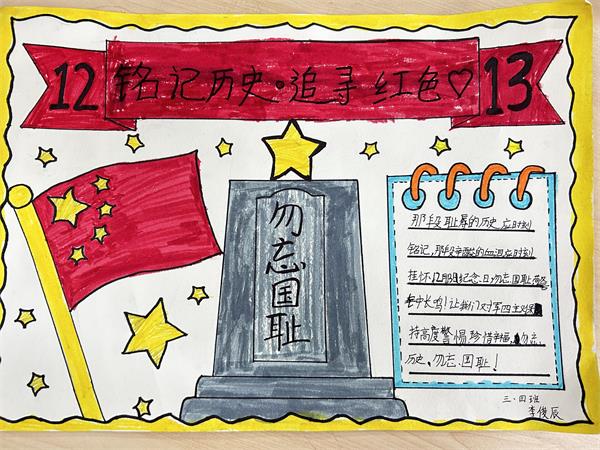 12 铭记历史·追寻红色♡ 13
勿忘国耻
那段耻辱的历史,应时刻
铭记,那段辛酸的血泪应时刻
挂怀12月13日纪念日勿忘国耻
钟长鸣!让我们对军国主义保
持高度警惕珍惜幸福,勿忘
历史。勿忘国耻!
三·四班
李俊辰